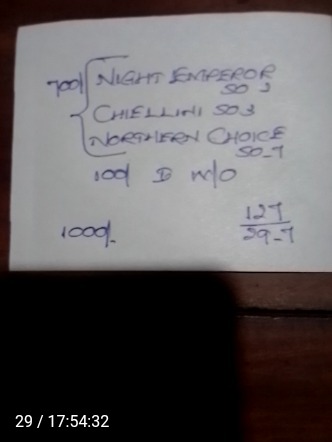 700/ NIGHT EMPEROR
SO 3
CHIELLINI SO 3
NORTHERN CHOICE
SO-7
100/ D W/O
1000/-
127
29-7
29 / 17:54:32